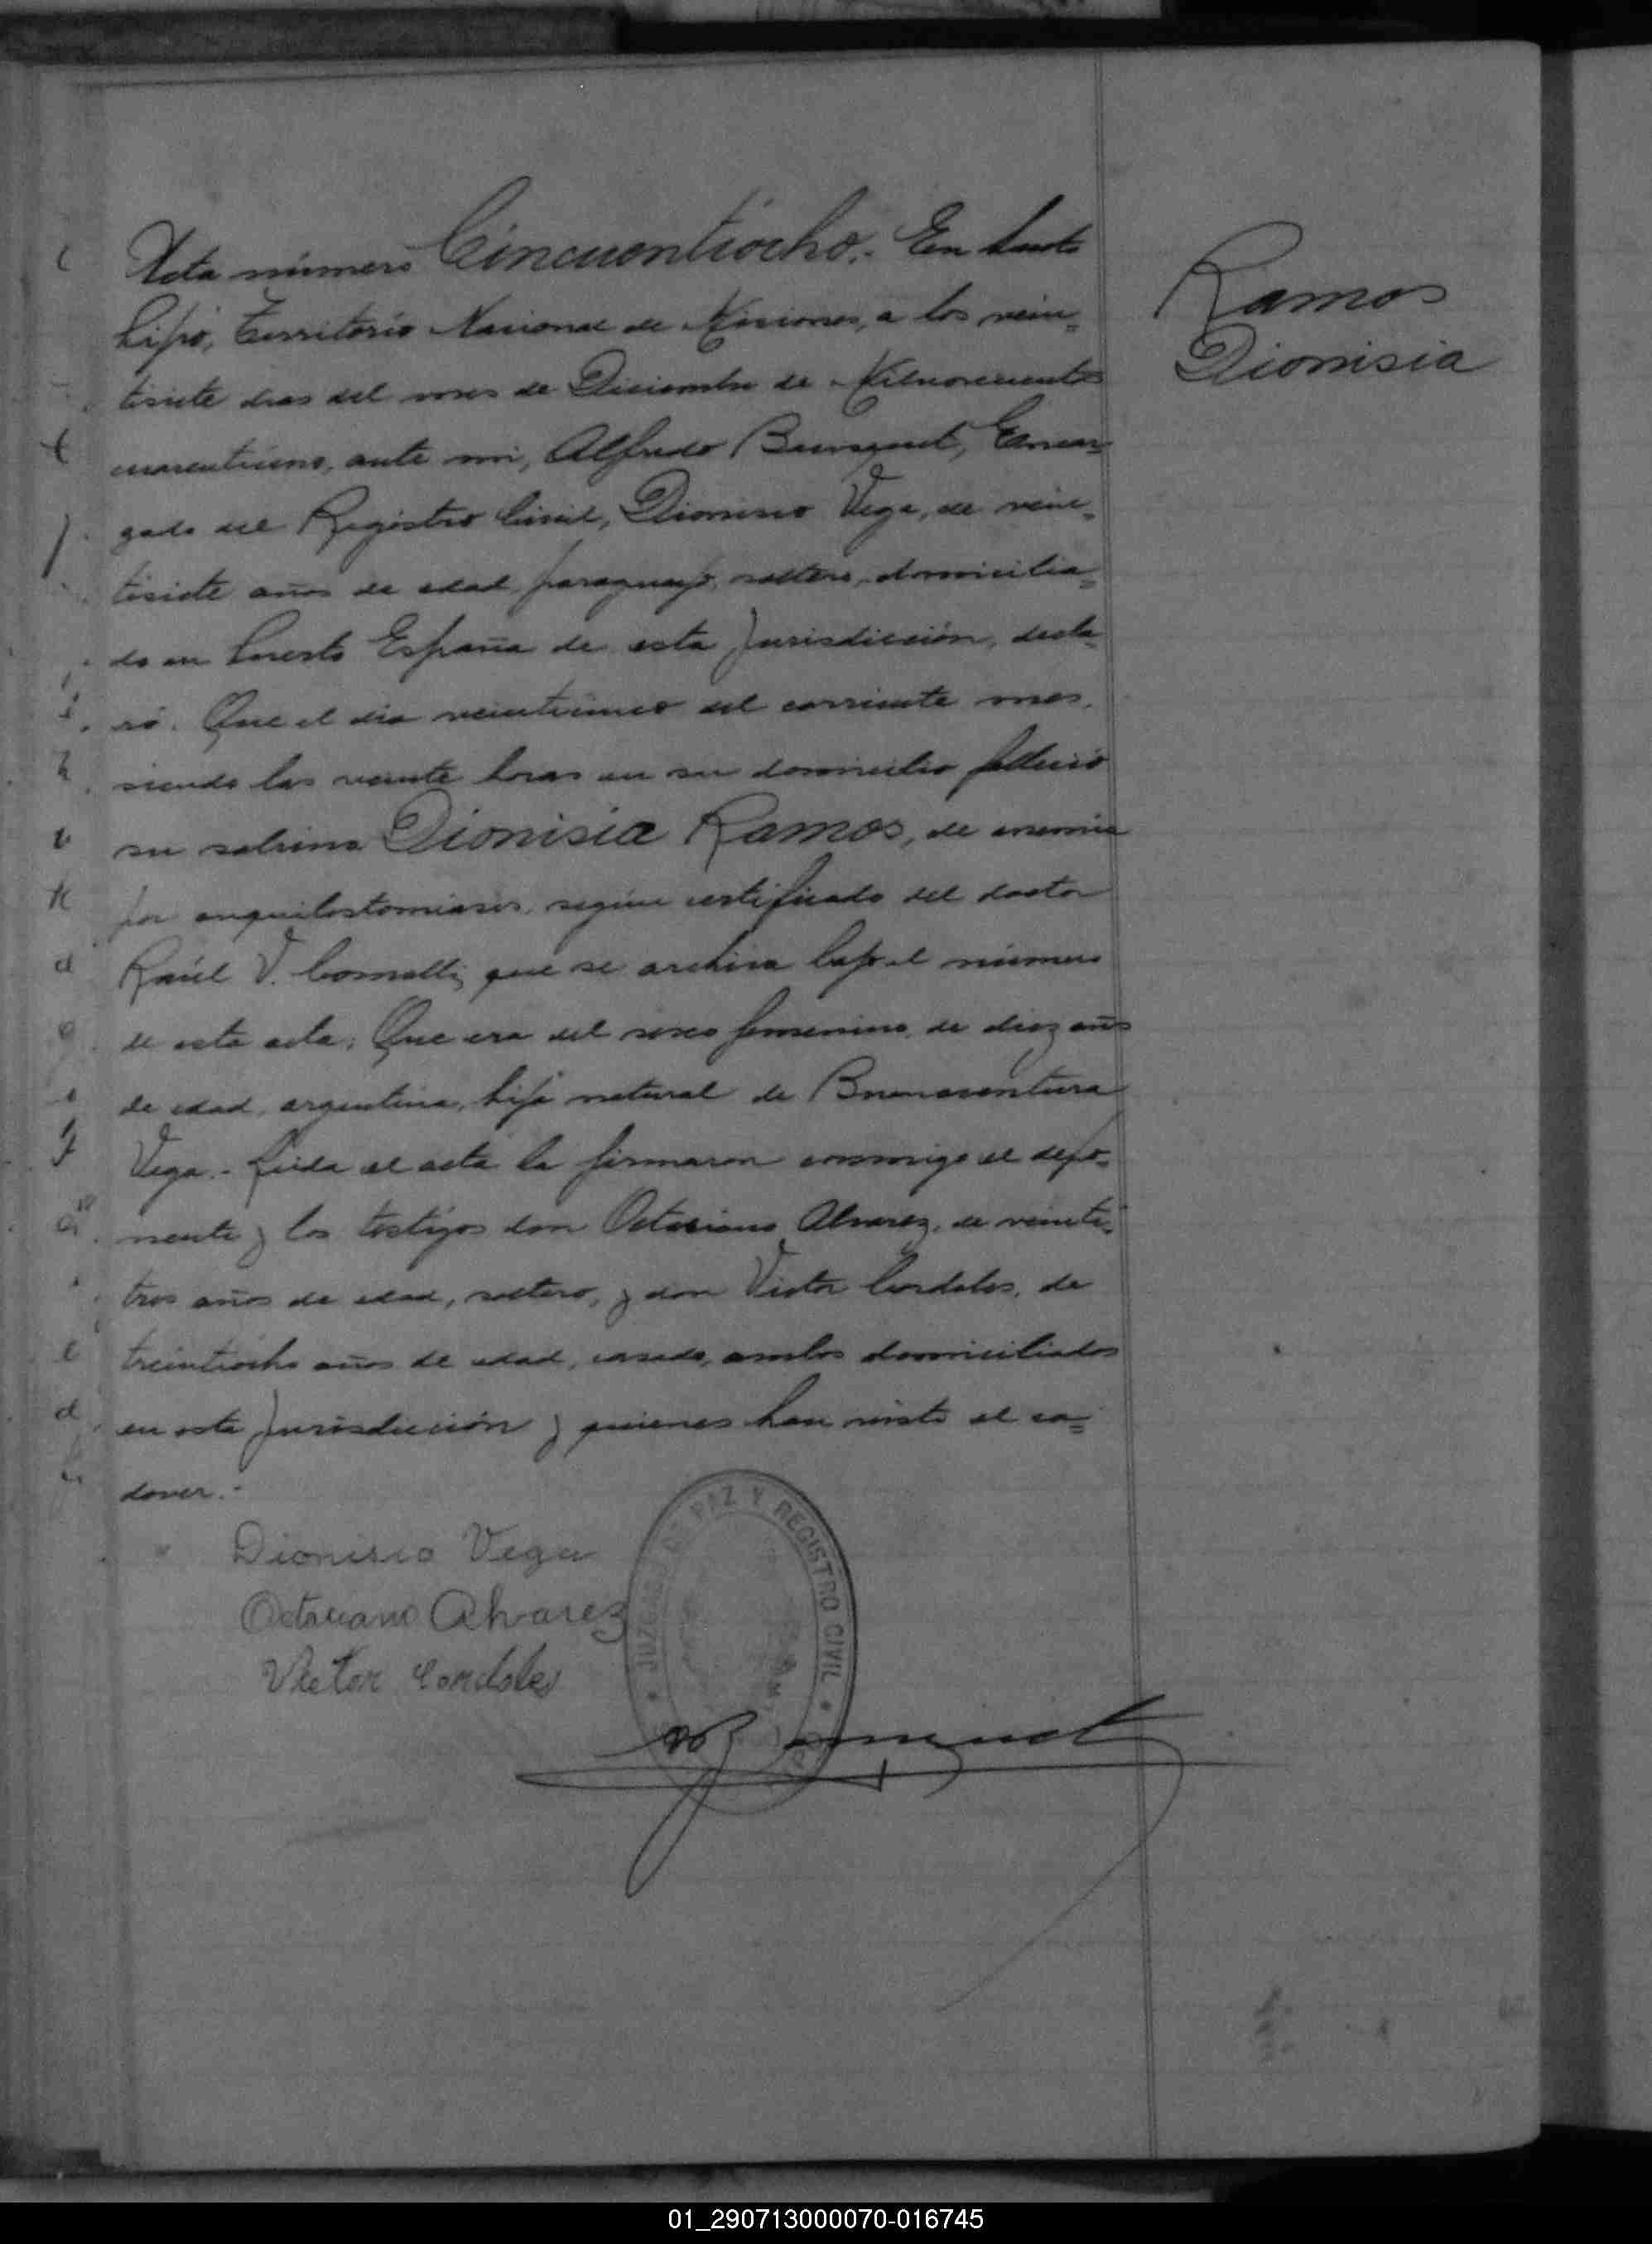 Acta número Cincuentiocho.- En Santo
Pipó, Territorio Nacional de Misiones, a los vein=
tisiete dias del mes de Diciembre de Milnovecientos
cuarentiuno, ante mi, Alfredo Encar=
gado del Registro Civil, Dionisio Vega, de vein=
tisiete años de edad, paraguayo, soltero, domicilia=
do en Puerto España de esta Jurisdicción, decla=
ró: Que el dia veinticinco del corriente mes,
siendo las veinte horas en su domicilio falleció
su sobrina Dionisia Ramos, de anemia
por anquilostomiasis, según certificado del doctor
Raúl V. que se archiva bajo el número
de esta acta; Que era del sexo femenino, de diez años
de edad, argentina, hija natural de Buenaventura
Vega.- Leida el acta la firmaron conmigo el depo=
nente y los testigos don Octaviano Alvarez, de veinti=
tres años de edad, soltero, y don Victor Cordoles, de
treintiocho años de edad, casado, ambos domiciliados
en esta Jurisdicción y quienes han visto el ca=
daver.-
Ramos
Dionisia
Dionisio Vega
Octaviano Alvarez
Victor Cordoles
JUZGADO DE PAZ Y REGISTRO CIVIL
01_290713000070-016745